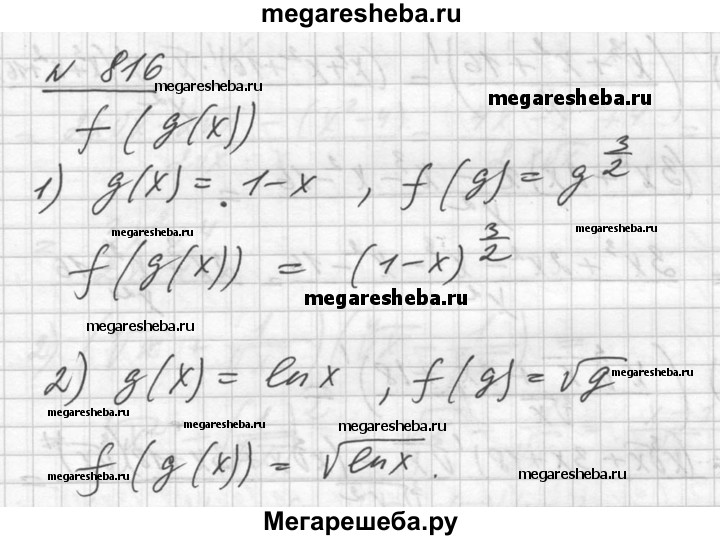 megaresheba.ru
№ 816
megaresheba.ru
megaresheba.ru
f(g(x))
1) g(x) = 1-x , f(g) = g^{3/2}
megaresheba.ru
megaresheba.ru
f(g(x)) = (1-x)^{3/2}
megaresheba.ru
megaresheba.ru
2) g(x) = ln x , f(g) = √g
megaresheba.ru
megaresheba.ru
megaresheba.ru
megaresheba.ru
f(g(x)) = √ln x.
megaresheba.ru
megaresheba.ru
Мегарешеба.ру